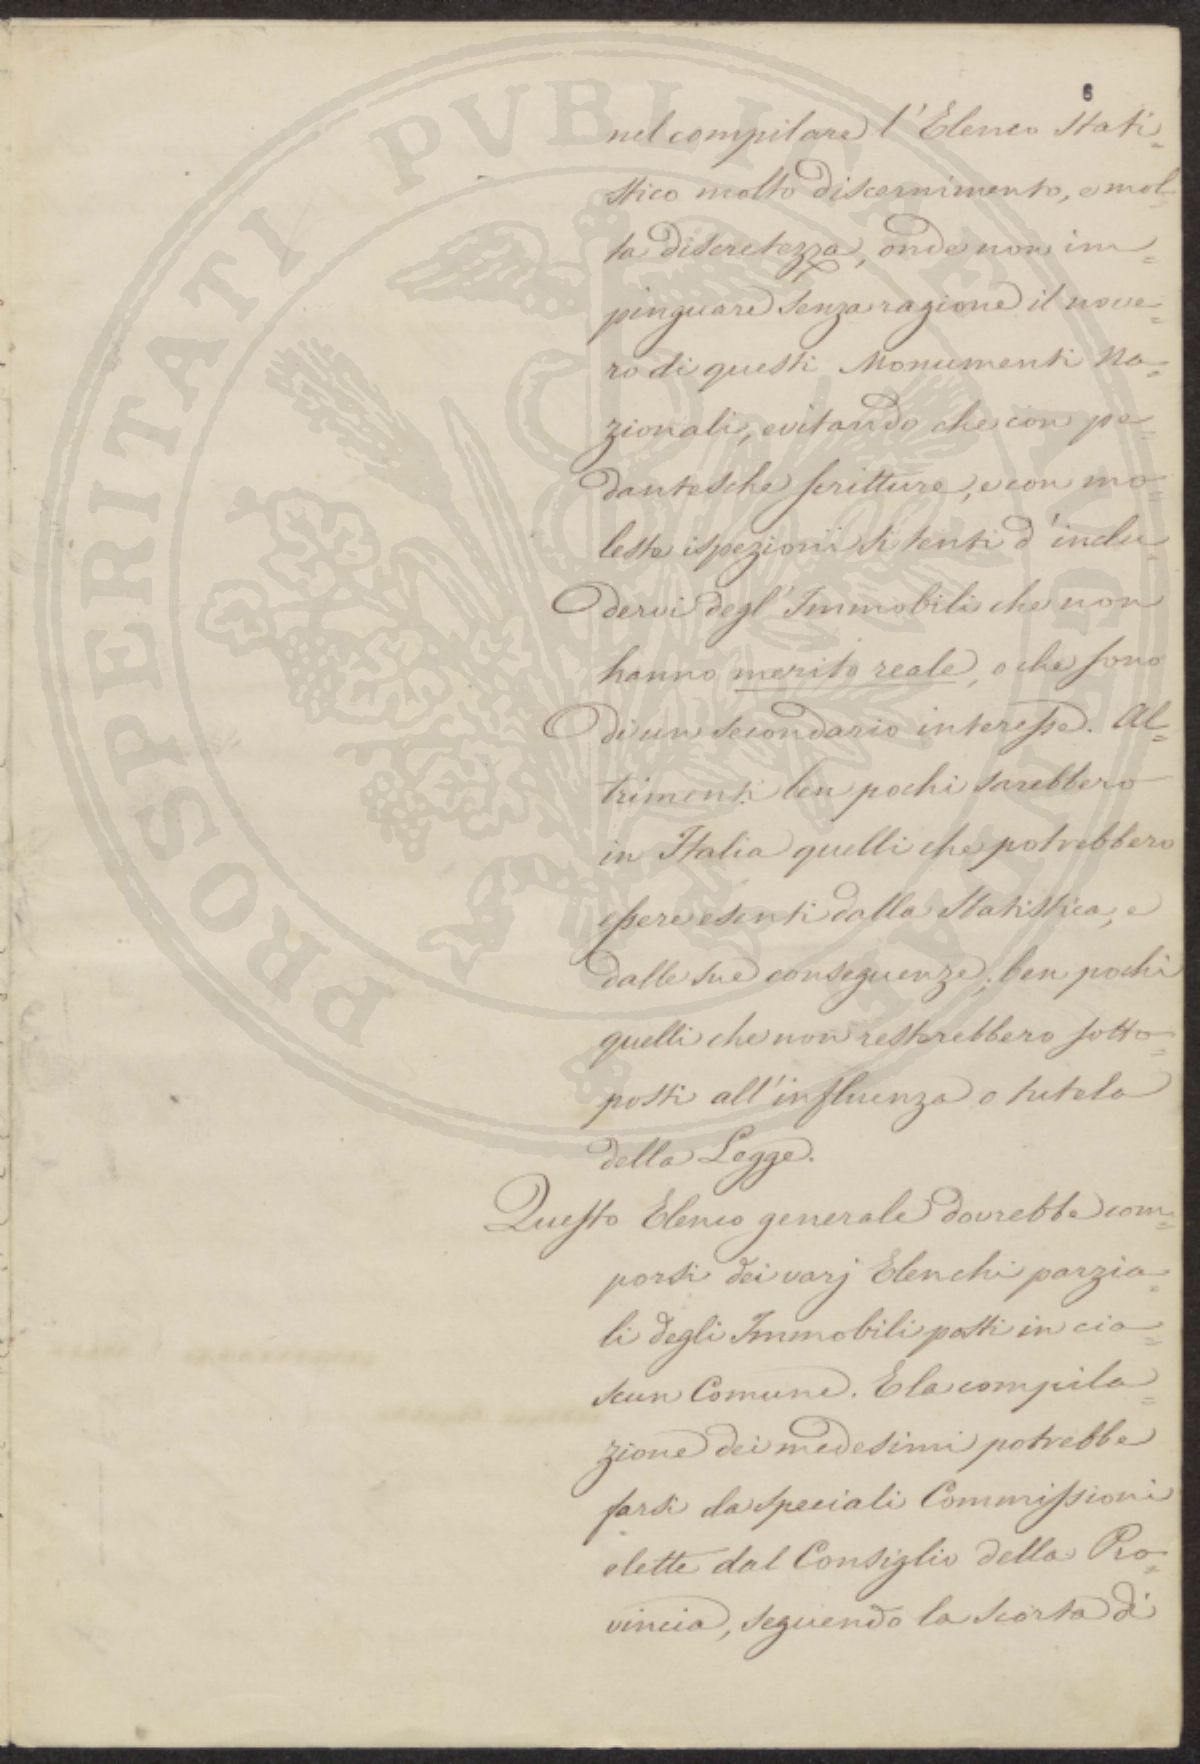 6
nel compilare l'Elenco Stati=
stico molto discernimento, e mol=
ta discretezza, onde non im=
pinguare senza ragione il nove=
ro di questi Monumenti Na=
zionali, evitando che con pe=
dantesche scritture, e con mo=
leste ispezioni si tenti d'inclu=
dervi degl'Immobili che non
hanno merito reale, o che sono
di un secondario interesse. Al=
trimenti ben pochi sarebbero
in Italia quelli che potrebbero
essere esenti dalla Statistica, e
dalle sue conseguenze; ben pochi
quelli che non resterebbero sotto=
posti all'influenza o tutela
della Legge.
Questo Elenco generale dovrebbe com=
porsi dei varj Elenchi parzia=
li degli Immobili posti in cia=
scun Comune. E la compila=
zione dei medesimi potrebbe
farsi da speciali Commissioni
elette dal Consiglio della Pro=
vincia, seguendo la scorta di
PROSPERITATI PVBLICAE AVGENDAE